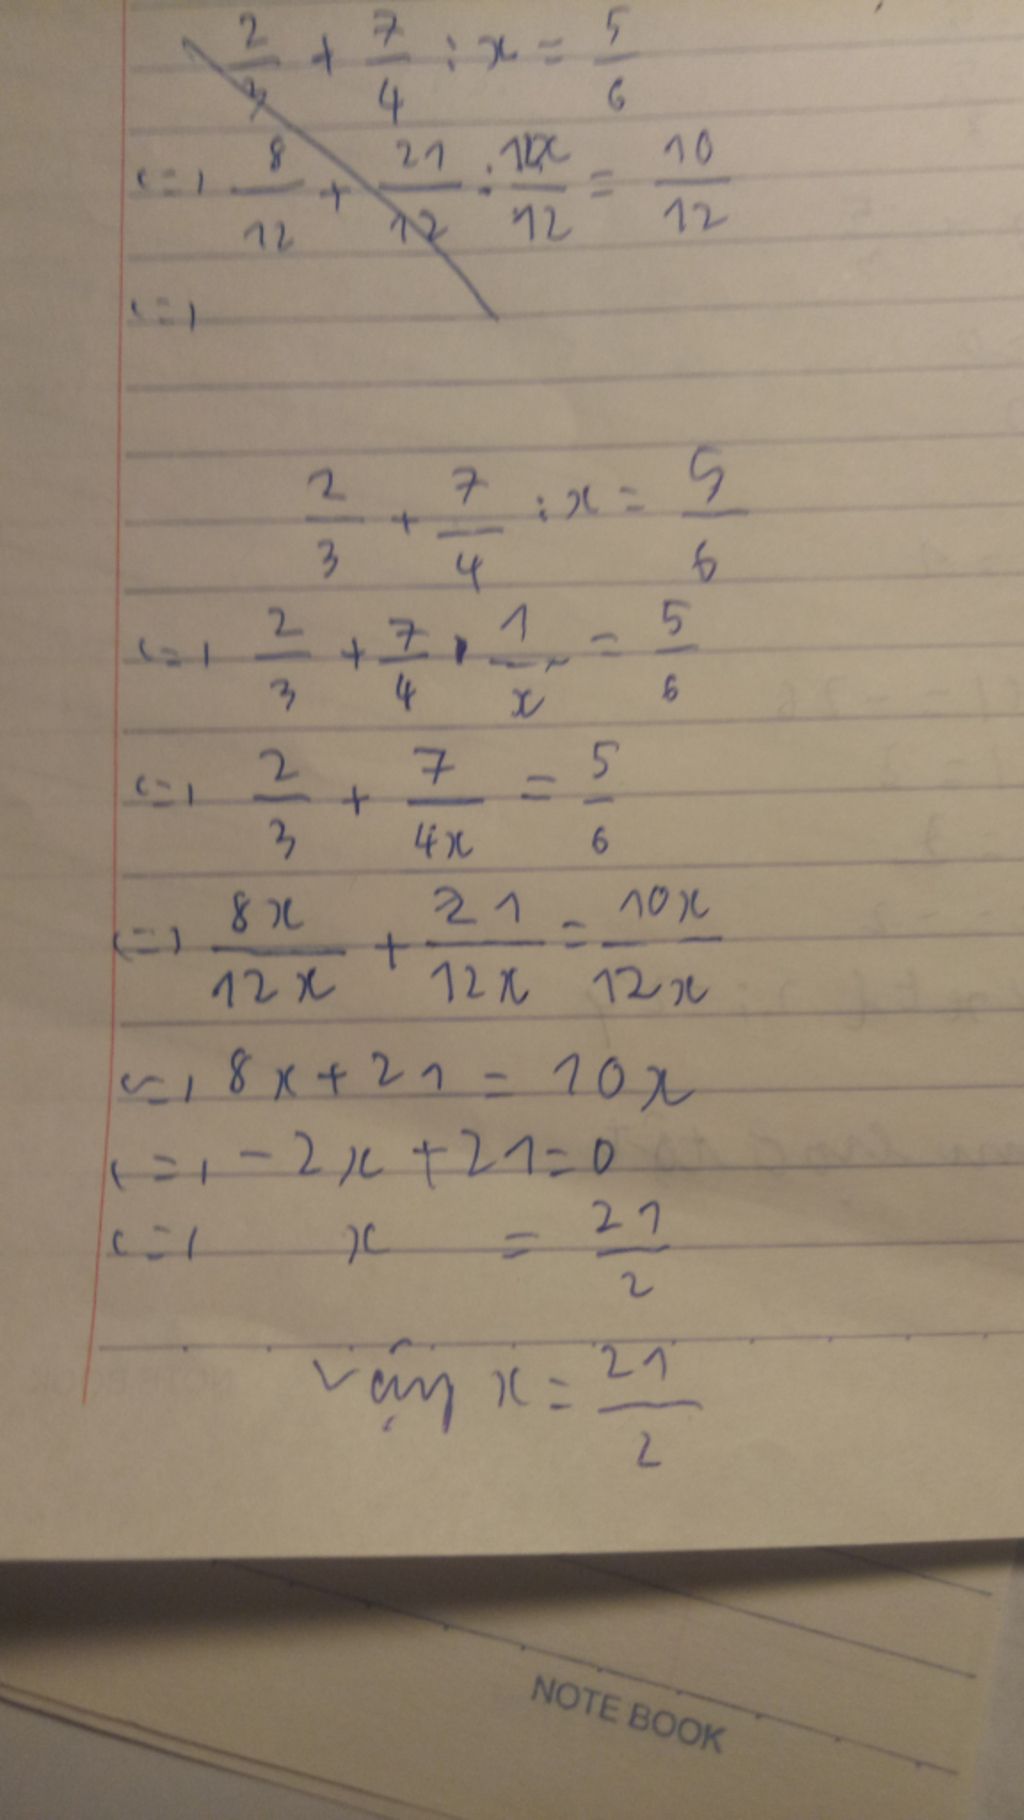 2/3 + 7/4 : x = 5/6
<=> 8/12 + 21/12 : 12x/12 = 10/12
<=>
2/3 + 7/4 : x = 5/6
<=> 2/3 + 7/4 . 1/x = 5/6
<=> 2/3 + 7/4x = 5/6
<=> 8x/12x + 21/12x = 10x/12x
<=> 8x + 21 = 10x
<=> -2x + 21 = 0
<=> x = 21/2
Vậy x = 21/2
NOTE BOOK